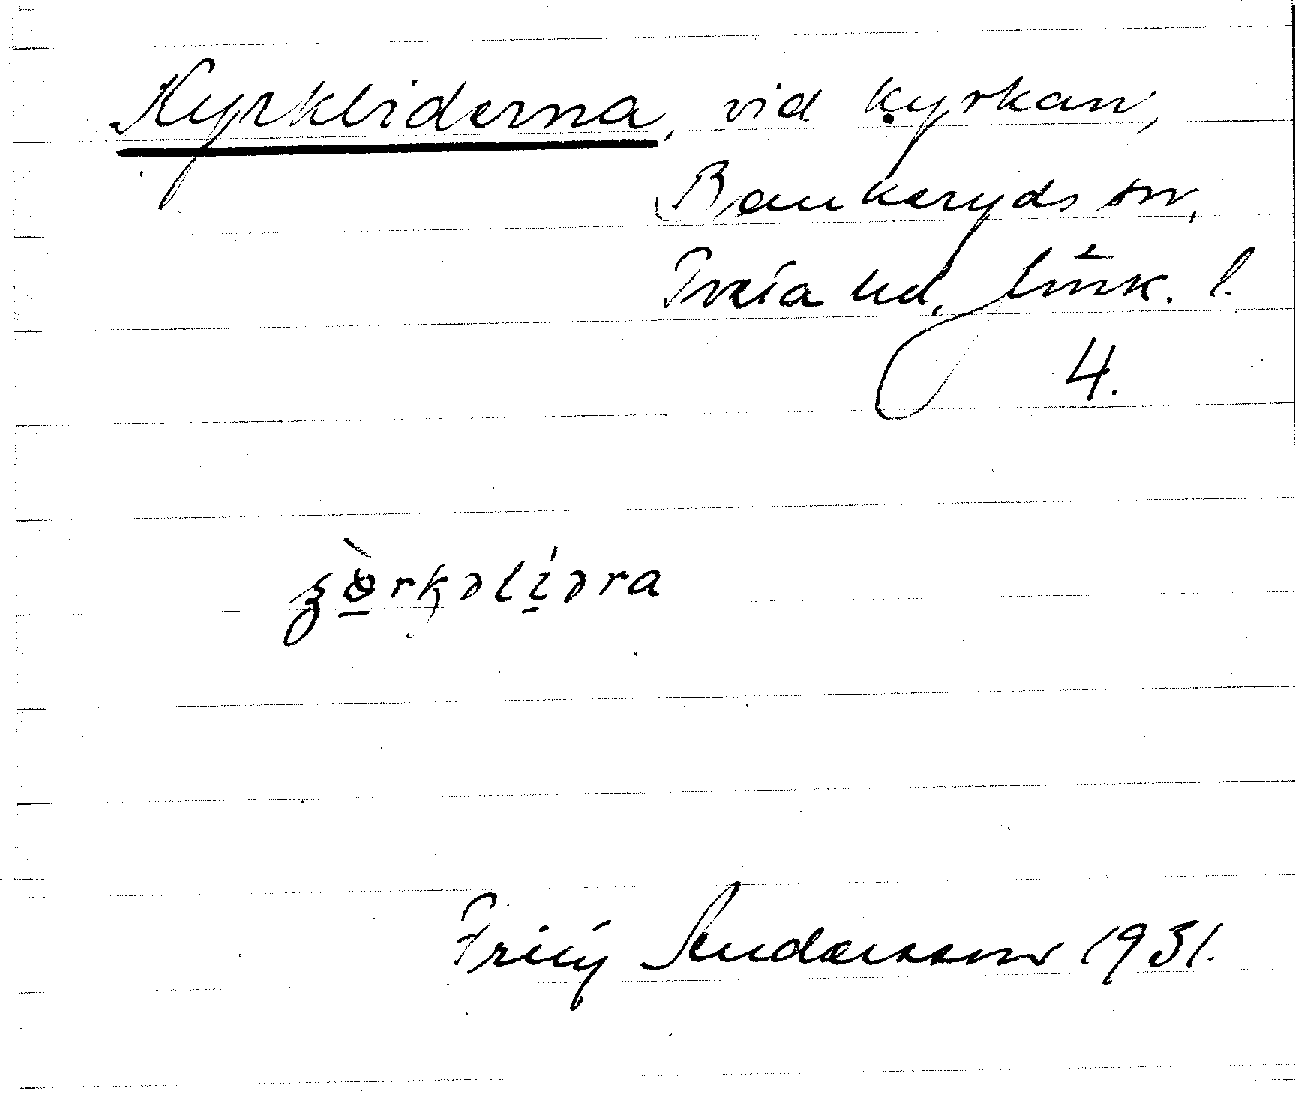 Kyrkliderna, vid kyrkan,
Bankeryds sn,
Tveta hd, Jönk. l.
4.
Fritiş Andersson 1931.